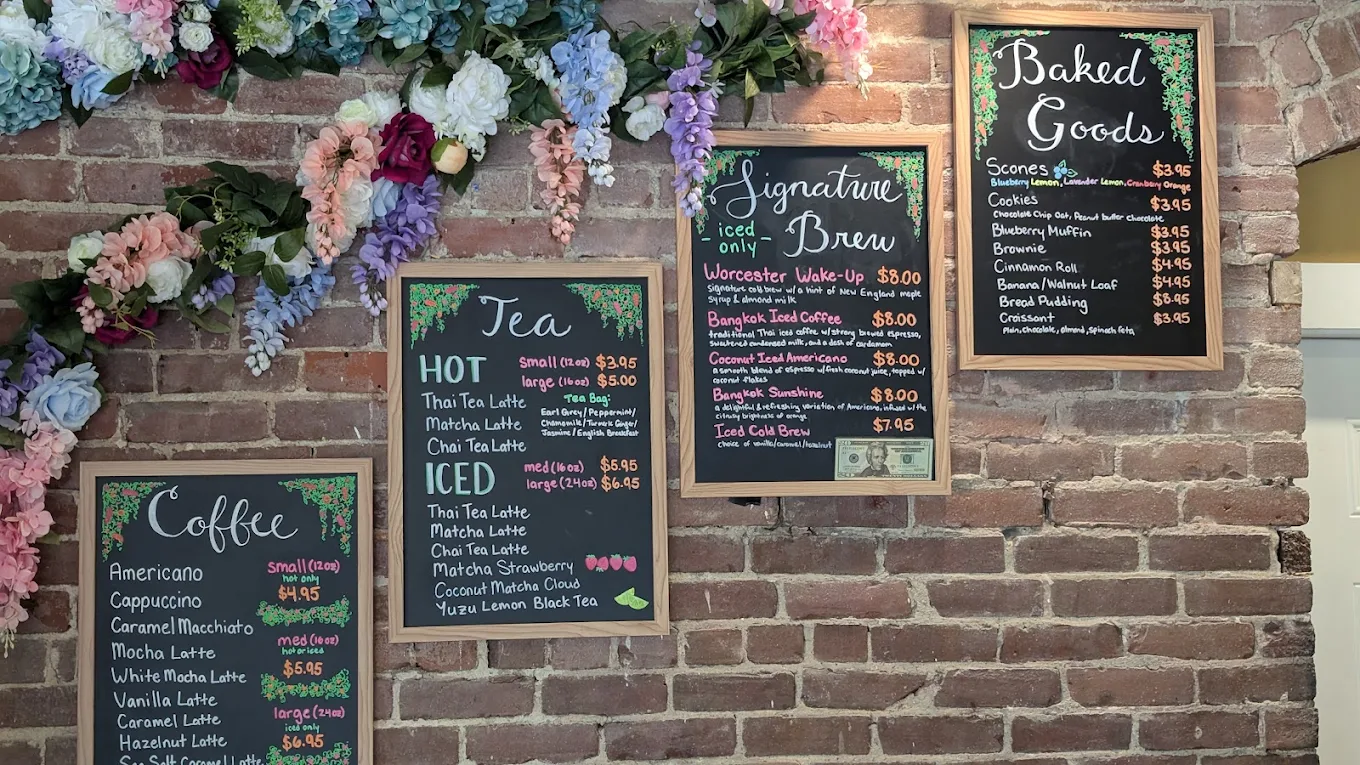 Coffee
Americano
Cappuccino
Caramel Macchiato
Mocha Latte
White Mocha Latte
Vanilla Latte
Caramel Latte
Hazelnut Latte
Sea Salt Caramel Latte
small (12oz)
hot only
$4.95
med (16oz)
hot or iced
$5.95
large (24oz)
iced only
$6.95
Tea
HOT
small (12oz) $3.95
large (16oz) $5.00
Thai Tea Latte
Matcha Latte
Chai Tea Latte
Tea Bag:
Earl Grey / Peppermint/
Chamomile/Turmeric Ginger/
Jasmine / English Breakfast
ICED
med (16oz) $5.95
large (24oz) $6.95
Thai Tea Latte
Matcha Latte
Chai Tea Latte
Matcha Strawberry
Coconut Matcha Cloud
Yuzu Lemon Black Tea
Signature
- iced only -
Brew
Worcester Wake-Up $8.00
signature cold brew w/a hint of New England maple
syrup & almond milk
Bangkok Iced Coffee $8.00
traditional Thai iced coffee w/strong brewed espresso,
sweetened condensed milk, and a dash of cardamom
Coconut Iced Americano $8.00
a smooth blend of espresso w/fresh coconut juice, topped w/
coconut flakes
Bangkok Sunshine $8.00
a delightful & refreshing variation of Americano, infused w/the
citrusy brightness of orange
Iced Cold Brew $7.95
choice of vanilla/caramel/hazelnut
Baked
Goods
Scones $3.95
Blueberry Lemon, Lavender Lemon, Cranberry Orange
Cookies $3.95
Chocolate Chip Oat, Peanut butter chocolate
Blueberry Muffin $3.95
Brownie $3.95
Cinnamon Roll $4.95
Banana/Walnut Loaf $4.95
Bread Pudding $8.95
Croissant $3.95
Plain, chocolate, almond, spinach feta,